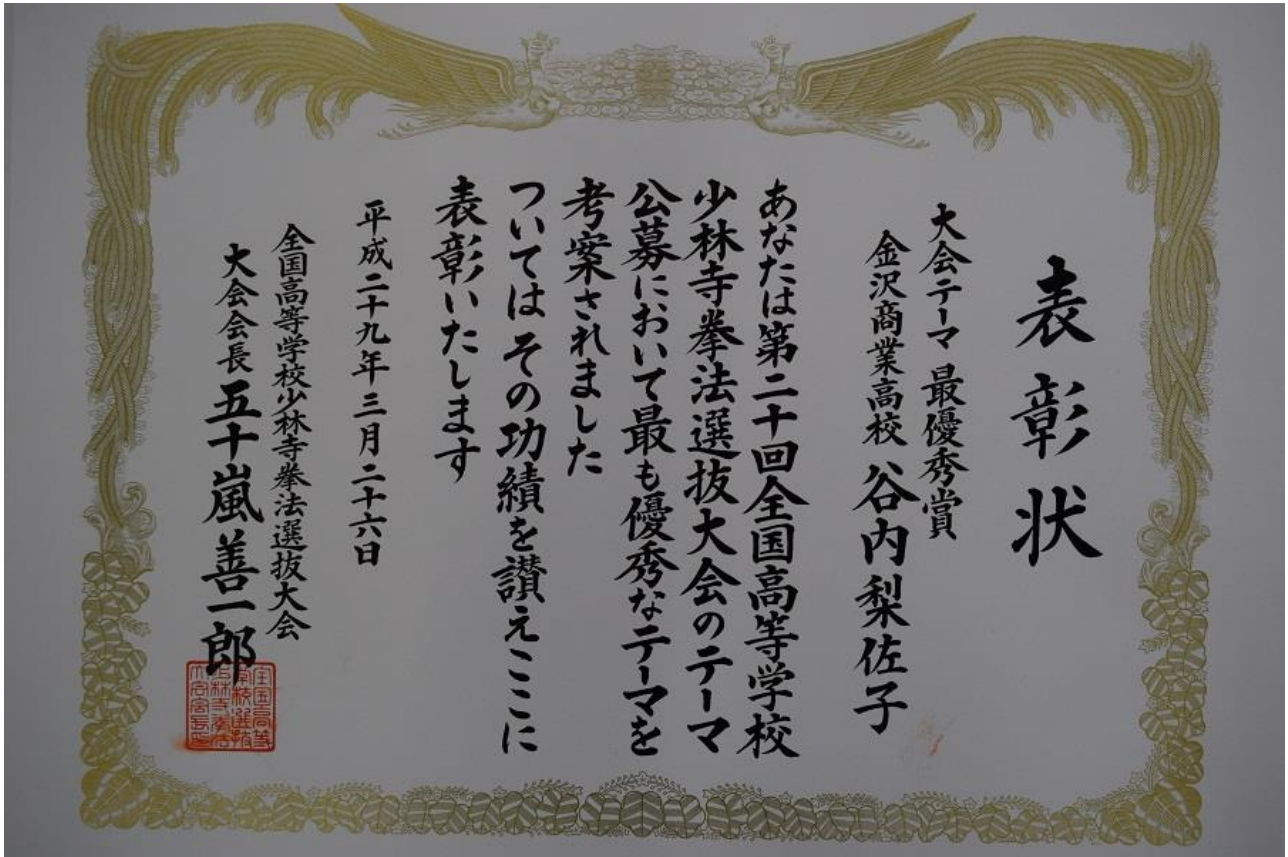 表彰状
大会テーマ 最優秀賞
金沢商業高校 谷内梨佐子
あなたは第二十回全国高等学校
少林寺拳法選抜大会のテーマ
公募において最も優秀なテーマを
考案されました
ついてはその功績を讃えここに
表彰いたします
平成二十九年三月二十六日
全国高等学校少林寺拳法選抜大会
大会会長 五十嵐善一郎